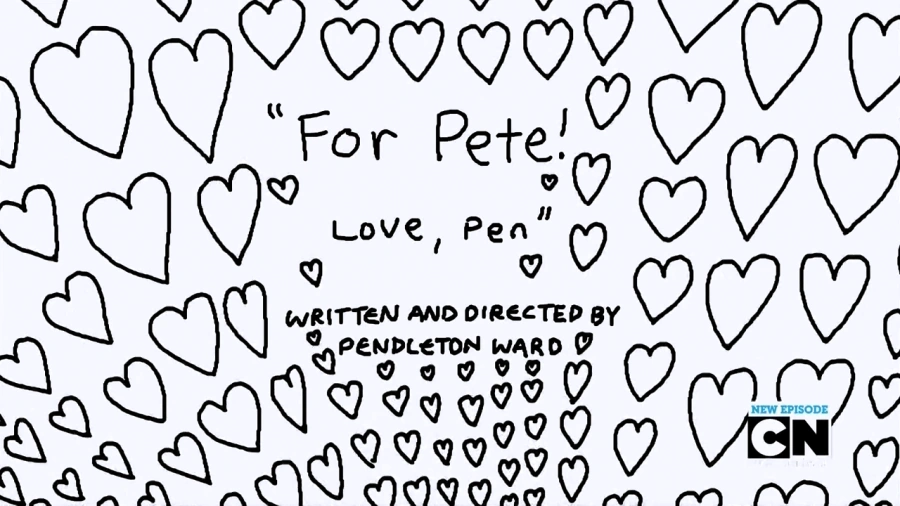 "For Pete!
Love, Pen"
WRITTEN AND DIRECTED BY
PENDLETON WARD
NEW EPISODE
CN